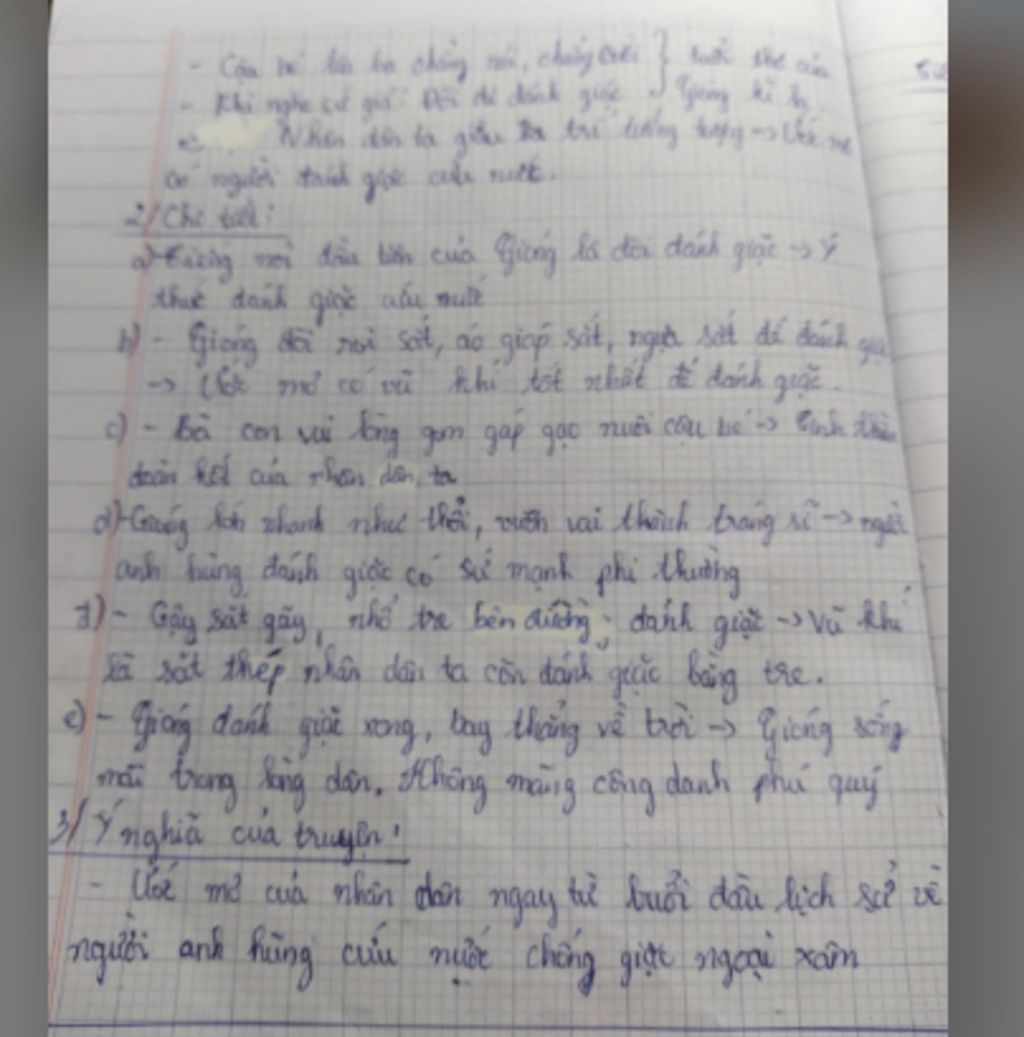 - Cậu bé lên ba chẳng nói, chẳng cười } tuổi thơ của
- Khi nghe sứ giả: Đòi đi đánh giặc } Gióng kì lạ
=> Nhân dân ta giàu trí tưởng tượng -> Ước mơ
có người đánh giặc cứu nước.
2/ Chi tiết:
a) Tiếng nói đầu tiên của Gióng là đòi đánh giặc -> Ý
thức đánh giặc cứu nước
b) - Gióng đòi roi sắt, áo giáp sắt, ngựa sắt để đánh giặc
-> Ước mơ có vũ khí tốt nhất để đánh giặc.
c) - Bà con vui lòng gom góp gạo nuôi cậu bé -> Tinh thần
đoàn kết của nhân dân ta
d) - Gióng lớn nhanh như thổi, vươn vai thành tráng sĩ -> người
anh hùng đánh giặc có sức mạnh phi thường
đ) - Gậy sắt gãy, nhổ tre bên đường, đánh giặc -> Vũ khí
là sắt thép nhân dân ta còn đánh giặc bằng tre.
e) - Gióng đánh giặc xong, bay thẳng về trời -> Gióng sống
mãi trong lòng dân, Không màng công danh phú quý
3/ Ý nghĩa của truyện:
- Ước mơ của nhân dân ngay từ buổi đầu lịch sử về
người anh hùng cứu nước chống giặc ngoại xâm